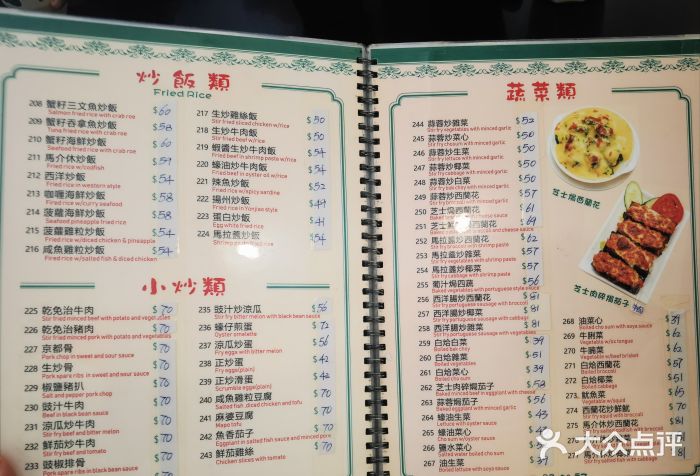 炒飯類
Fried Rice
208 蟹籽三文魚炒飯 $60
Salmon fried rice with crab roe
209 蟹籽吞拿魚炒飯 $58
Tuna fried rice with crab roe
210 蟹籽海鮮炒飯 $60
Seafood fried rice with crab roe
211 馬介休炒飯 $59
Fried rice w/codfish
212 西洋炒飯 $54
Fried rice in western style
213 咖喱海鮮炒飯 $58
Fried rice w/curry seafood
214 菠蘿海鮮炒飯 $58
Seafood pineapple fried rice
215 菠蘿雞粒炒飯 $54
Fried rice w/diced chicken & pineapple
216 咸魚雞粒炒飯 $54
Fried rice w/salted fish & diced chicken
217 生炒雞絲飯 $50
Stir fried sliced chicken w/rice
218 生炒牛肉飯 $50
Stir fried beef w/rice
219 蝦醬生炒牛肉飯 $54
Fried beef in shrimp paste w/rice
220 蠔油炒牛肉飯 $54
Fried beef in oyster oil w/rice
221 辣魚炒飯 $52
Fried rice w/spicy sardine
222 揚州炒飯 $49
Fried rice in Yunjiao style
223 蛋白炒飯 $49
Egg white fried rice
224 馬拉盞炒飯 $54
Shrimp paste fried rice
小炒類
225 乾免治牛肉 $70
Stir fried minced beef with potato and vegetables
226 乾免治豬肉 $70
Stir fried minced pork with potato and vegetables
227 京都骨 $70
Pork chop in sweet and sour sauce
228 生炒骨 $70
Pork spare ribs in sweet and sour sauce
229 椒鹽豬扒 $70
Salt and pepper pork chop
230 豉汁牛肉 $70
Beef in black bean sauce
231 涼瓜炒牛肉 $70
Stir fry beef and bitter melon
232 鮮茄炒牛肉 $70
Stir fried beef and tomato
233 豉椒排骨 $70
Pork spare ribs in black bean sauce
235 豉汁炒涼瓜 $56
Stir fry bitter melon with black bean sauce
236 蠔仔煎蛋 $72
Oyster omelette
237 涼瓜炒蛋 $56
Fry eggs with bitter melon
238 正炒蛋 $42
Fry eggs(plain)
239 正炒滑蛋 $42
Scramble eggs(plain)
240 咸魚雞粒豆腐 $70
Salted fish diced chicken and tofu
241 麻婆豆腐 $70
Mapo tofu
242 魚香茄子 $70
Eggplant in salted fish and minced pork
243 鮮茄炒雞絲 $70
Chicken slices with tomato
蔬菜類
244 蒜蓉炒雜菜 $52
Stir fry vegetables with minced garlic
245 蒜蓉炒菜心 $50
Stir fry choisum with minced garlic
246 蒜蓉炒生菜 $50
Stir fry lettuce with minced garlic
247 蒜蓉炒椰菜 $50
Stir fry cabbage with minced garlic
248 蒜蓉炒白菜 $50
249 蒜蓉炒西蘭花 $57
250 芝士焗西蘭花 $61
251 $69
252 馬拉盞炒西蘭花 $62
253 馬拉盞炒雜菜 $57
Stir fry vegetables with shrimp paste
254 馬拉盞炒椰菜 $57
Stir fry cabbage with shrimp paste
255 葡汁焗四蔬 $56
Baked vegetables with portuguese style sauce
256 西洋腸炒西蘭花 $62
257 西洋腸炒椰菜 $57
Stir fry portuguese sausage with cabbage
258 西洋腸炒雜菜 $57
Stir fry portuguese sausage with vegetables
259 白焓白菜 $39
Boiled bak choy
260 白焓雜菜 $51
Boiled vegetables
261 白焓菜心 $39
Boiled choi sum
262 芝士肉碎焗茄子 $58
Baked minced beef in eggplant with cheese
263 蒜蓉焗茄子 $56
Baked eggplant with minced garlic
264 蠔油生菜 $43
Lettuce with oyster sauce
265 蠔油菜心 $43
Choi sum w/oyster sauce
266 鹽水菜心 $39
267 油生菜 $39
Boiled lettuce w/soya sauce
芝士焗西蘭花
芝士肉碎焗茄子
268 油菜心 $39
Boiled choi sum w/soya sauce
269 牛脷菜 $61
Vegetable w/ox tongue
270 牛腩菜 $61
Vegetable w/beef brisket
271 白焓西蘭花 $57
Boiled broccoli
272 白焓椰菜
Boiled cabbage
273 魷魚菜 $65
Vegetable w/squid
274 西蘭花炒鮮魷 $70
Stir fry squid with broccoli
275 牛肉炒西蘭花
大众点评